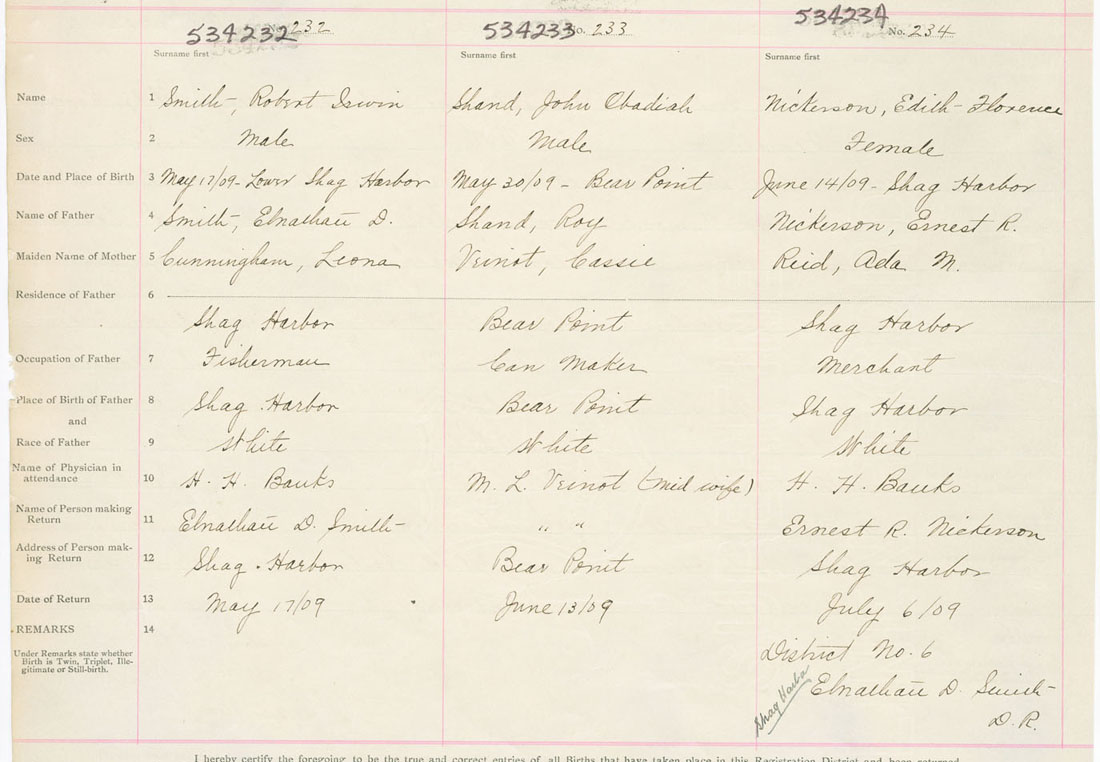 534232 No. 232 534233 No. 233 534234 No. 234
Surname first Surname first Surname first
Name 1 Smith, Robert Irwin Shand, John Obadiah Nickerson, Edith Florence
Sex 2 Male Male Female
Date and Place of Birth 3 May 17/09 - Lower Shag Harbor May 30/09 - Bear Point June 14/09 - Shag Harbor
Name of Father 4 Smith, Elnathan D. Shand, Roy Nickerson, Ernest R.
Maiden Name of Mother 5 Cunningham, Leona Veinot, Cassie Reid, Ada M.
Residence of Father 6
Shag Harbor Bear Point Shag Harbor
Occupation of Father 7 Fisherman Can Maker Merchant
Place of Birth of Father 8 Shag Harbor Bear Point Shag Harbor
and
Race of Father 9 White White White
Name of Physician in
attendance 10 H. H. Banks M. L. Veinot (Mid wife) H. H. Banks
Name of Person making
Return 11 Elnathan D. Smith " " Ernest R. Nickerson
Address of Person mak-
ing Return 12 Shag Harbor Bear Point Shag Harbor
Date of Return 13 May 17/09 June 13/09 July 6/09
REMARKS 14
Under Remarks state whether
Birth is Twin, Triplet, Ille-
gitimate or Still-birth.
District No. 6
Shag Harbor
Elnathan D. Smith
D. R.
I hereby certify the foregoing to be the true and correct entries of all Births that have taken place in this Registration District and been returned